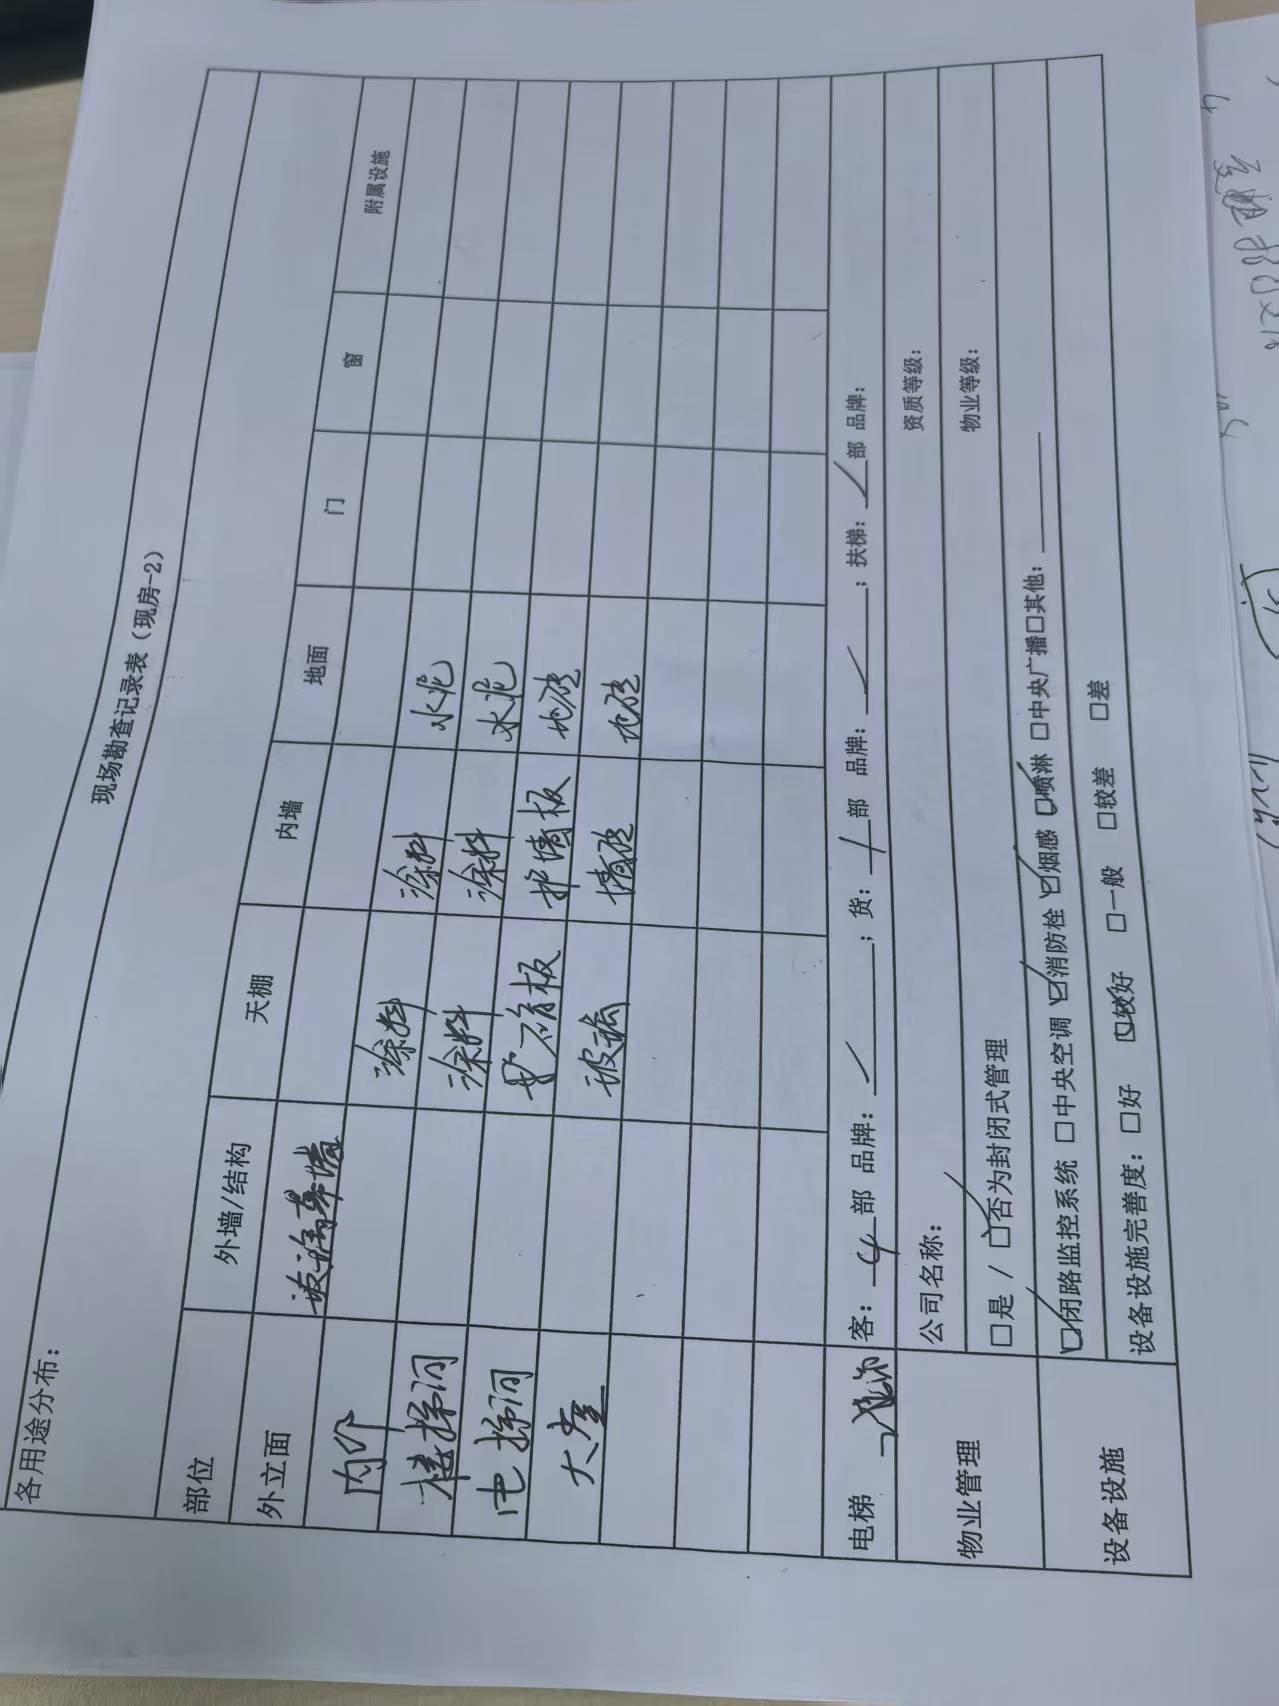 现场勘查记录表（现房-2）
各用途分布：
部位 外墙/结构 天棚 内墙 地面 门 窗 附属设施
外立面 玻璃幕墙
内部 涂料 涂料 水泥
楼梯间 涂料 涂料 水泥
电梯间 护墙板 地砖
大堂 墙砖 地砖
电梯 客：4部 品牌： ；货：1部 品牌： ；扶梯： 部 品牌：
物业管理 公司名称： 资质等级：
□是 / ☑否为封闭式管理 物业等级：
设备设施 ☑闭路监控系统 □中央空调 ☑消防栓 ☑烟感 ☑喷淋 □中央广播□其他：
设备设施完善度：□好 ☑较好 □一般 □较差 □差